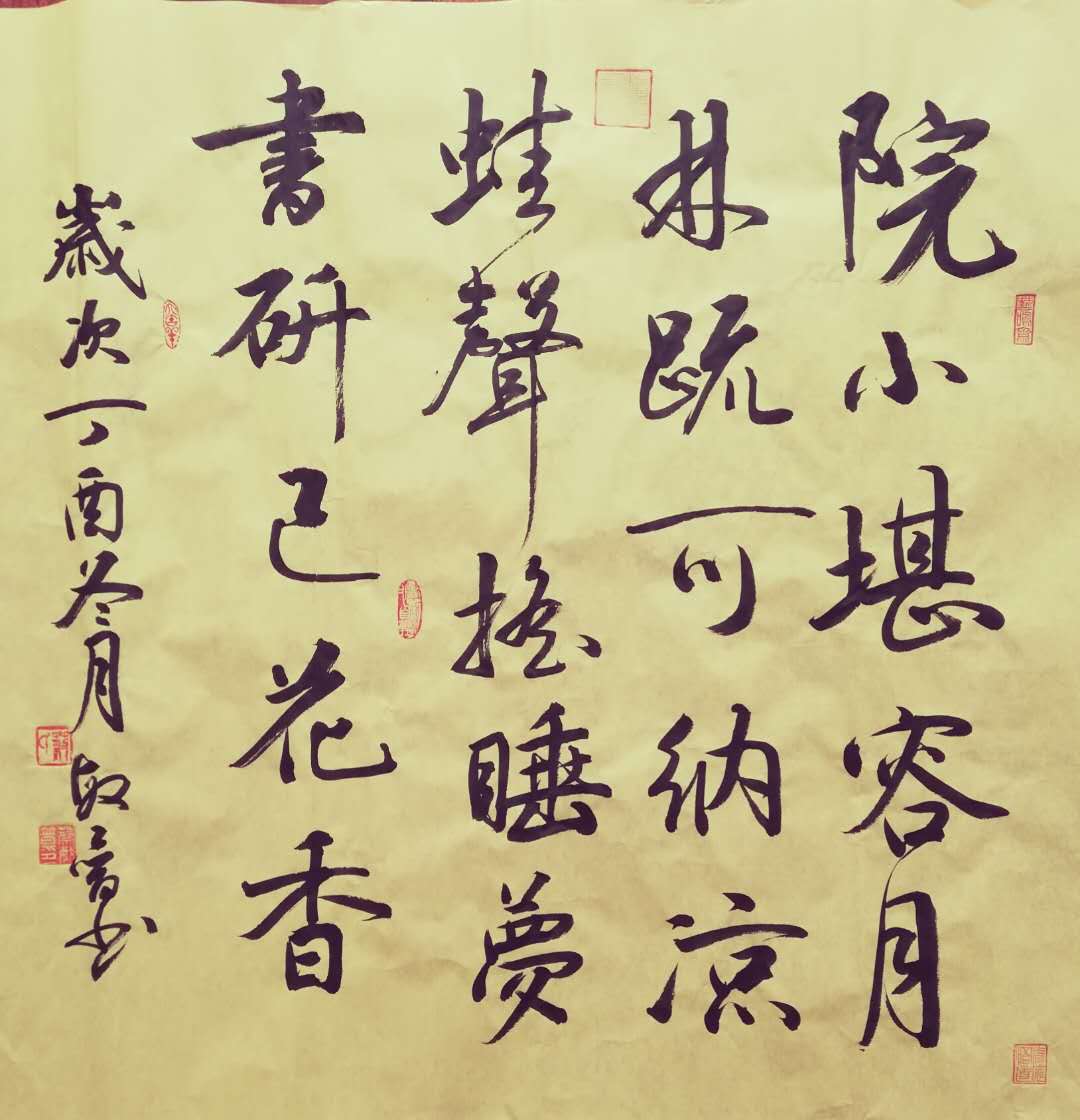 院小堪容月
林疏可納凉
蛙聲搖睡夢
書研已花香
歲次丁酉冬月敏 書